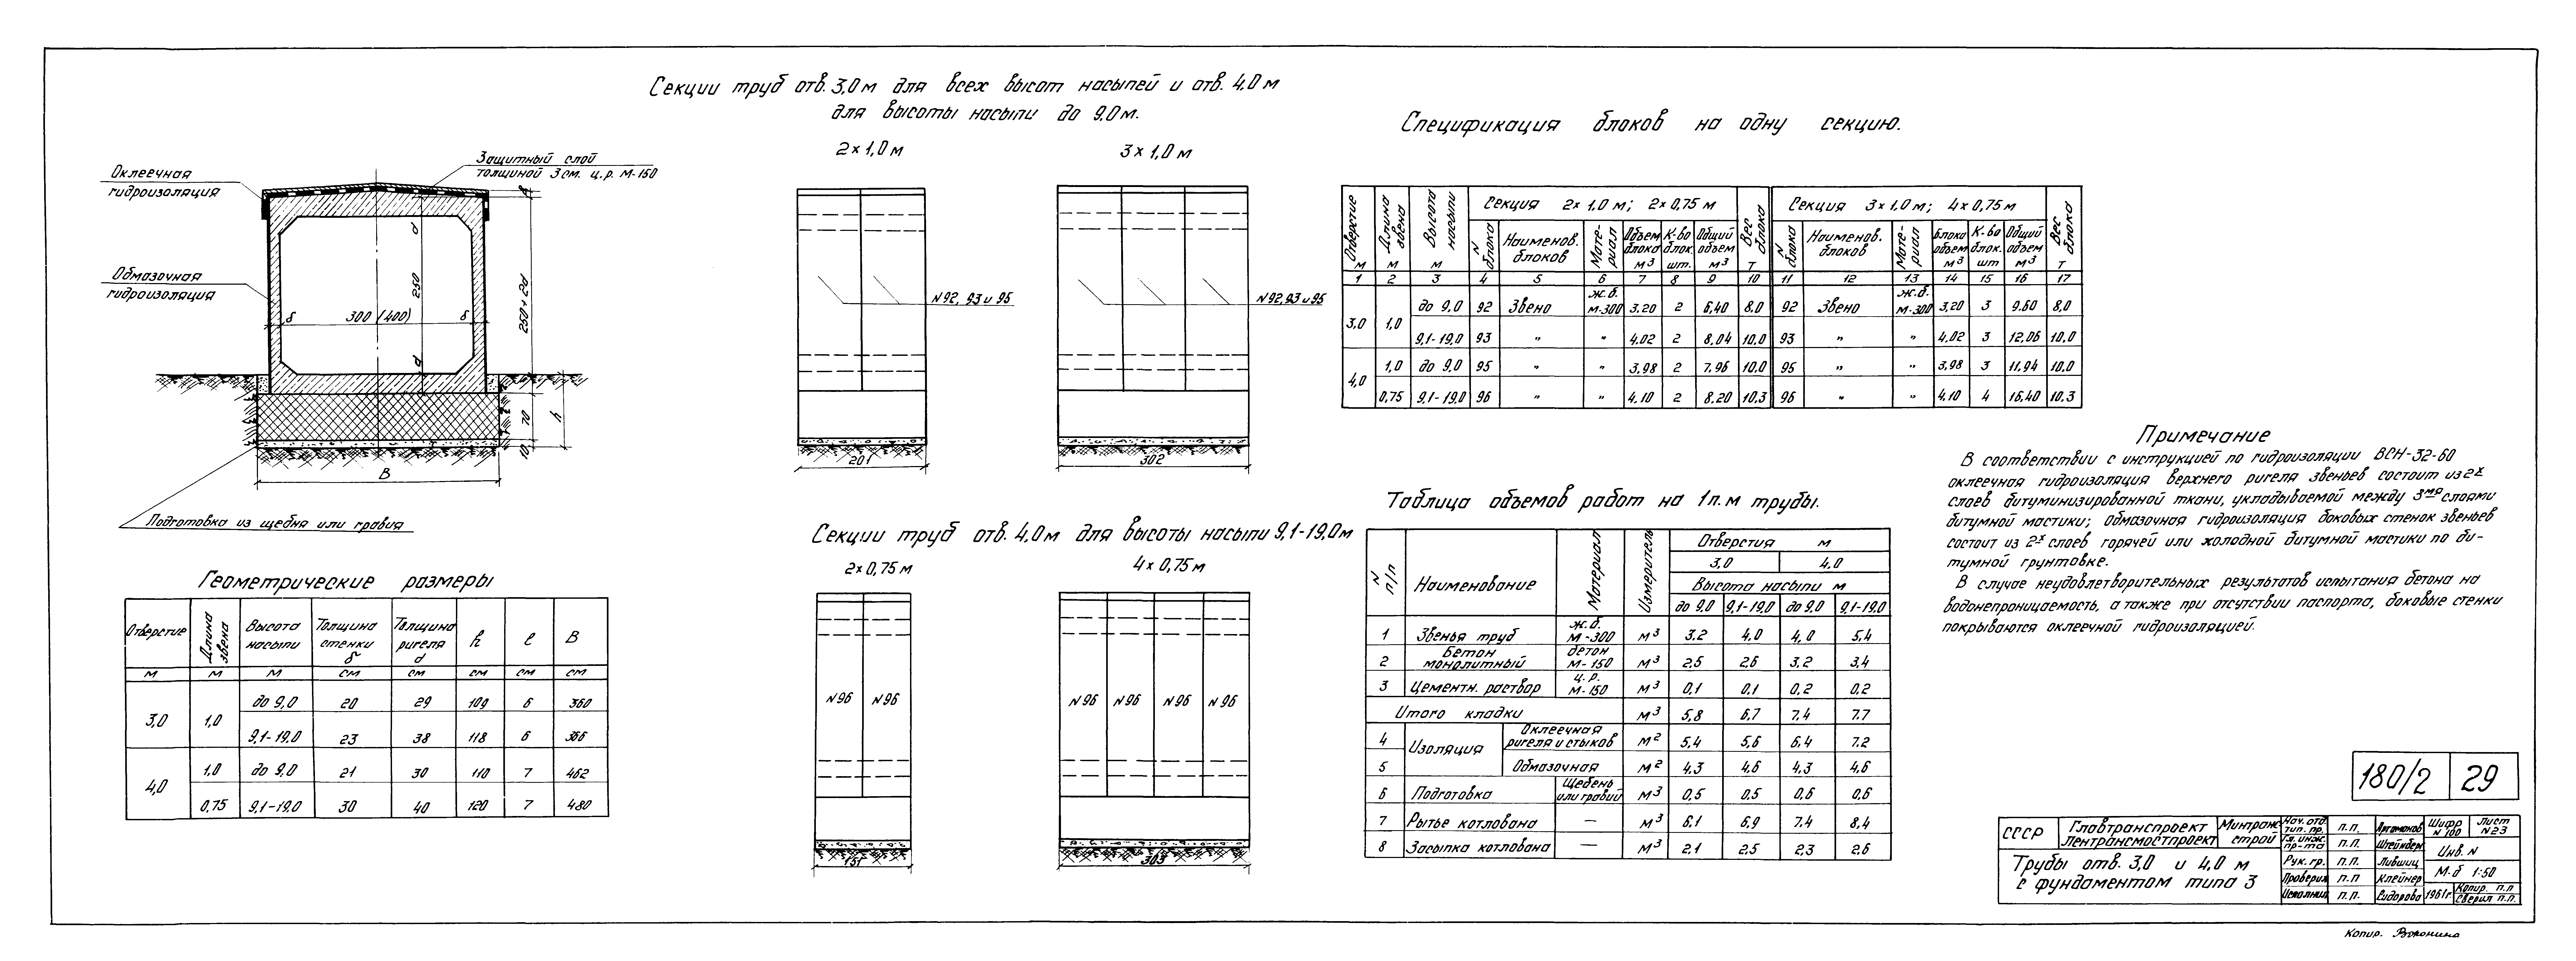 Секции труб отв. 3,0 м для всех высот насыпей и отв. 4,0 м
для высоты насыпи до 9,0 м.
2 × 1,0 м
3 × 1,0 м
Оклеечная
гидроизоляция
Защитный слой
толщиной 3 см. ц.р. М-150
Обмазочная
гидроизоляция
δ
300 (400)
δ
d
250
d
250+2d
70
10
h
В
Подготовка из щебня или гравия
N92, 93 и 95
201
N92,93 и 95
302
Секции труб отв. 4,0 м для высоты насыпи 9,1-19,0 м
2 × 0,75 м
4 × 0,75 м
N96 N96
N96 N96 N96 N96
151
303
Геометрические размеры
Отверстие Длина звена Высота насыпи Толщина стенки δ Толщина ригеля d h ℓ В
м м м см см см см см
3,0 1,0 до 9,0 20 29 109 6 360
9,1-19,0 23 38 118 6 366
4,0 1,0 до 9,0 21 30 110 7 462
0,75 9,1-19,0 30 40 120 7 480
Спецификация блоков на одну секцию.
Отверстие Длина звена Высота насыпи Секция 2×1,0 м; 2×0,75 м Вес блока Секция 3×1,0 м; 4×0,75 м Вес блока
N блока Наименов. блоков Мате-риал Объем блока К-во блок. Общий объем N блока Наименов. блоков Мате-риал Блока объем К-во блок. Общий объем
м м м м³ шт. м³ т м³ шт м³ т
1 2 3 4 5 6 7 8 9 10 11 12 13 14 15 16 17
3,0 1,0 до 9,0 92 Звено ж.б. М-300 3,20 2 6,40 8,0 92 Звено ж.б. М-300 3,20 3 9.60 8,0
9,1-19,0 93 " " 4,02 2 8,04 10,0 93 " " 4,02 3 12,06 10,0
4,0 1,0 до 9,0 95 " " 3,98 2 7,96 10,0 95 " " 3,98 3 11,94 10,0
0,75 9,1-19,0 96 " " 4,10 2 8,20 10,3 96 " " 4,10 4 16,40 10,3
Таблица объемов работ на 1 п.м трубы.
N п/п Наименование Материал Измеритель Отверстия м
3,0 4,0
Высота насыпи м
до 9,0 9,1-19,0 до 9,0 9,1-19,0
1 Звенья труб ж.б. М-300 м³ 3.2 4,0 4,0 5,4
2 Бетон монолитный бетон М-150 м³ 2.5 2.6 3,2 3,4
3 Цементн. раствор ц.р. М-150 м³ 0,1 0.1 0,2 0.2
Итого кладки м³ 5,8 6,7 7.4 7.7
4 Изоляция Оклеечная ригеля и стыков м² 5,4 5,6 6,4 7.2
5 Обмазочная м² 4,3 4,6 4,3 4,6
6 Подготовка Щебень или гравий м³ 0,5 0.5 0,6 0,6
7 Рытье котлована — м³ 6,1 6,9 7.4 8,4
8 Засыпка котлована — м³ 2.1 2.5 2,3 2.6
Примечание
В соответствии с инструкцией по гидроизоляции ВСН-32-60
оклеечная гидроизоляция верхнего ригеля звеньев состоит из 2х
слоев битуминизированной ткани, укладываемой между 3мя слоями
битумной мастики; обмазочная гидроизоляция боковых стенок звеньев
состоит из 2х слоев горячей или холодной битумной мастики по би-
тумной грунтовке.
В случае неудовлетворительных результатов испытания бетона на
водонепроницаемость, а также при отсутствии паспорта, боковые стенки
покрываются оклеечной гидроизоляцией.
180/2 29
СССР Главтранспроект Лентрансмостпроект Минтранс строй
Трубы отв. 3,0 и 4,0 м
с фундаментом типа 3
Нач. отд. тип. пр. п.п. Артамонов Шифр N 100 Лист N23
Гл. инж. пр-та п.п. Штейнберг Инв. N
Рук. гр. п.п. Лившиц М-б 1:50
Проверил п.п Клейнер
Исполнил п.п. Сидорова 1961г. Копир. п.п Сверил п.п.
Копир. Воронина